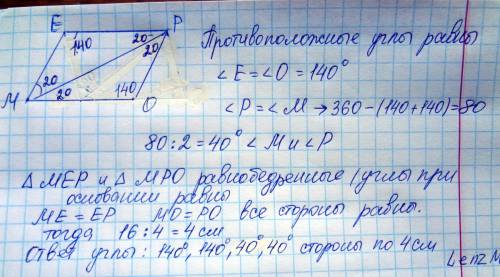 E
P
140
20
20
20
20
140
M
O
Противоположные углы равны
∠E=∠O=140°
∠P=∠M→360-(140+140)=80
80:2=40° ∠M и ∠P
△MEP и △MPO равнобедренные /углы при
основании равны
ME=EP MO=PO все стороны равны.
тогда 16:4=4см
Ответ углы: 140°, 140°, 40°, 40° стороны по 4см